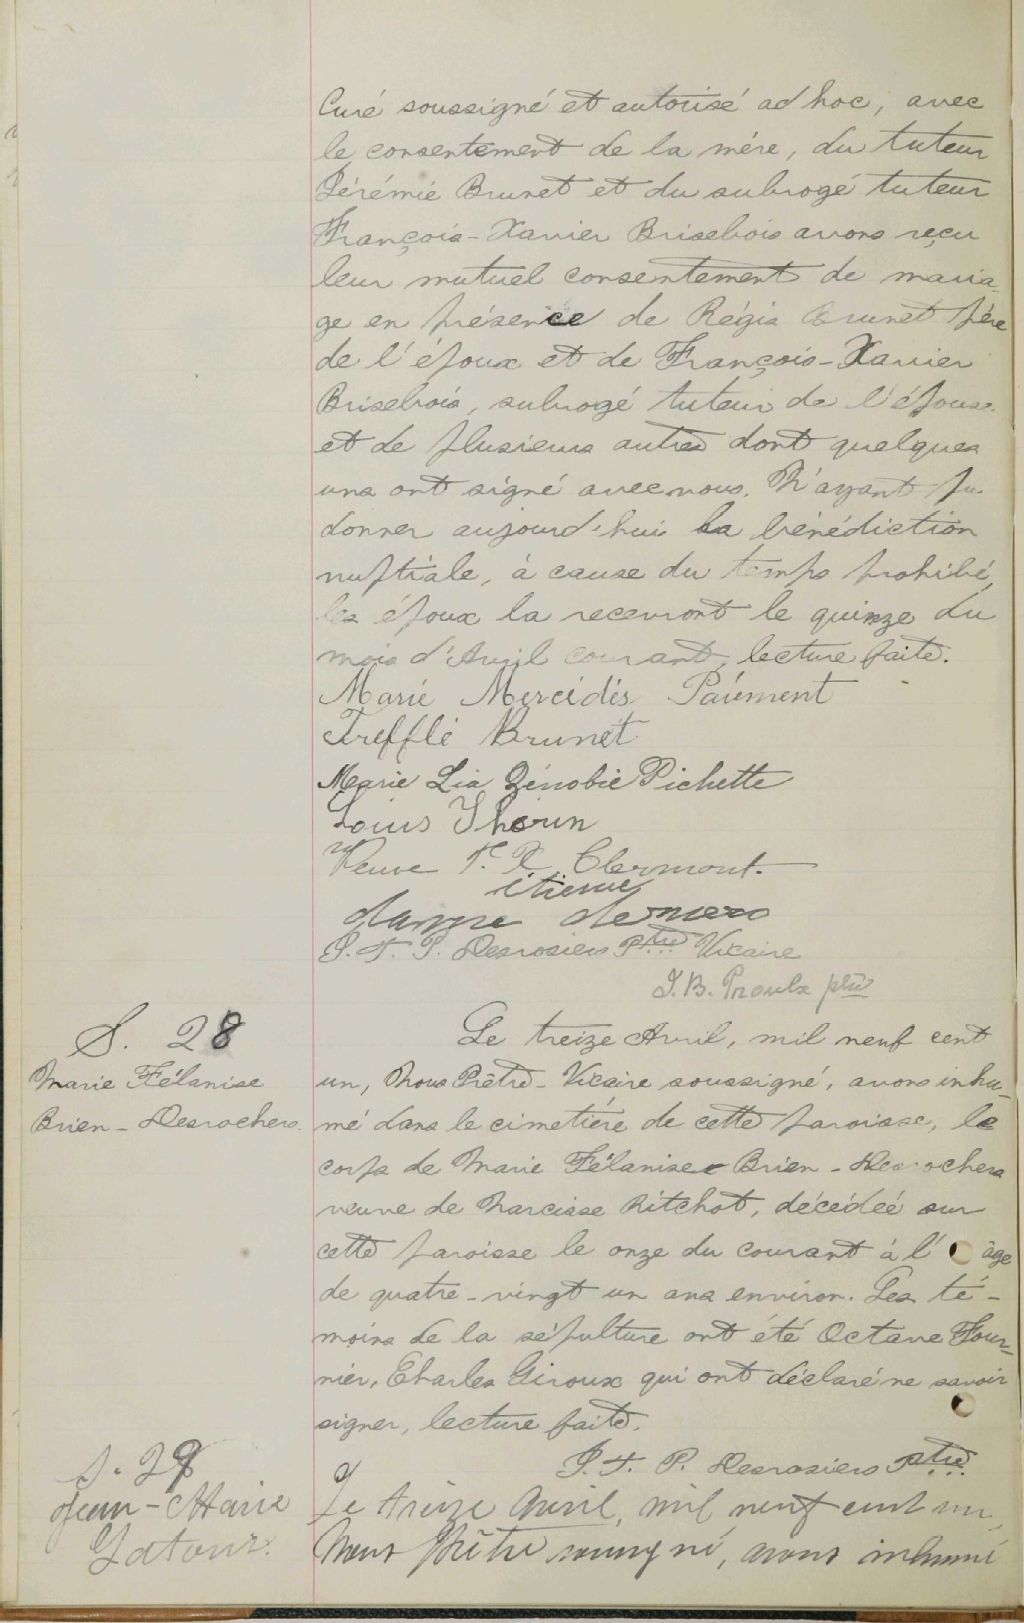 Curé soussigné et autorisé ad hoc, avec
le consentement de la mère, du tuteur
Jérémie Brunet et du subrogé tuteur
François-Xavier Brisebois avons reçu
leur mutuel consentement de maria-
ge en présence de Régis Brunet père
de l'époux et de François-Xavier
Brisebois, subrogé tuteur de l'épouse
et de plusieurs autres dont quelques
uns ont signé avec nous. N'ayant pu
donner aujourd'hui la bénédiction
nuptiale, à cause du temps prohibé,
les époux la recevront le quinze du
mois d'Avril courant, lecture faite.
Marie Mercédès Paiement
Trefflé Brunet
Marie Lia Zénobie Pichette
Louis Thorin
Veuve F. X. Clermont.
etienne
J. F. P. Desrosiers Ptre Vicaire
J. B. Proulx ptre
S. 28
Marie Félanise
Brien-Desrochers.
Le treize Avril, mil neuf cent
un, Nous Prêtre-Vicaire soussigné, avons inhu-
mé dans le cimetière de cette paroisse, le
corps de Marie Félanise Brien-Desrochers
veuve de Narcisse Ritchot, décédée sur
cette paroisse le onze du courant à l'âge
de quatre-vingt un ans environ. Les té-
moins de la sépulture ont été Octave Four-
nier, Charles Giroux qui ont déclaré ne savoir
signer, lecture faite.
J. F. P. Desrosiers Ptre.
S. 29
Jean-Marie
Latour.
Le treize Avril, mil neuf cent un,
Nous Prêtre soussigné, avons inhumé